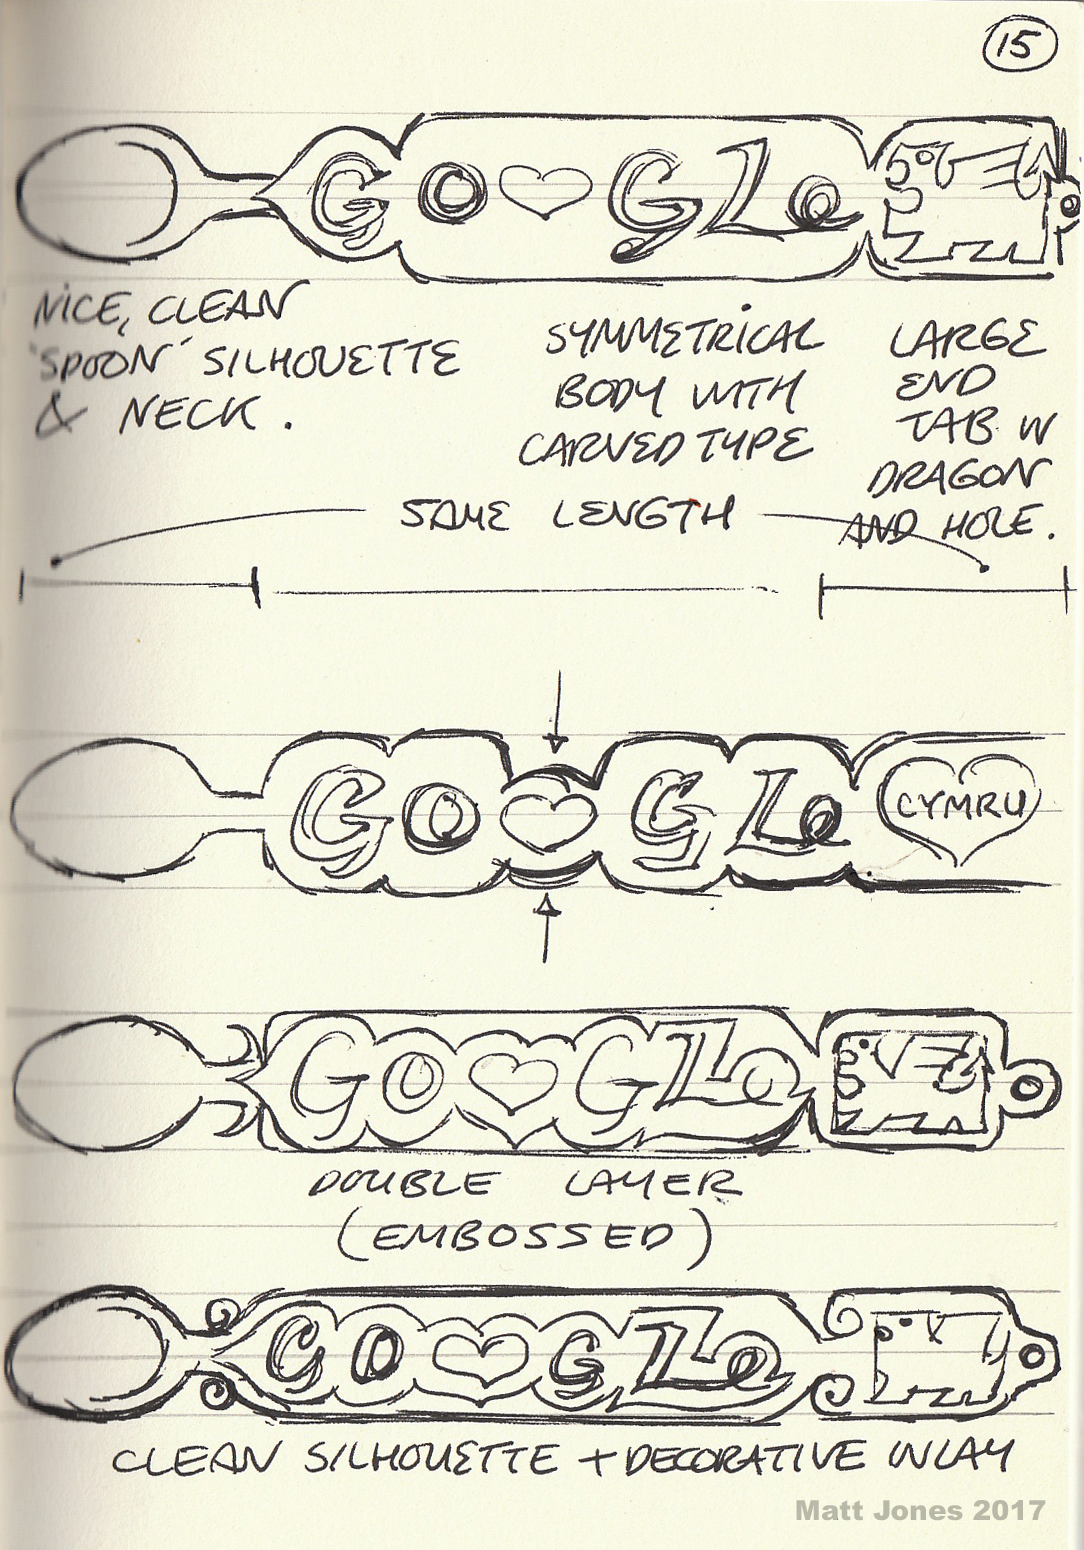 15
GO♡GLe
NICE, CLEAN
'SPOON' SILHOUETTE
& NECK.
SYMMETRICAL
BODY WITH
CARVED TYPE
LARGE
END
TAB W
DRAGON
AND HOLE.
SAME LENGTH
GO♡GLe
CYMRU
GO♡GLe
DOUBLE LAYER
(EMBOSSED)
GO♡GLe
CLEAN SILHOUETTE + DECORATIVE INLAY
Matt Jones 2017